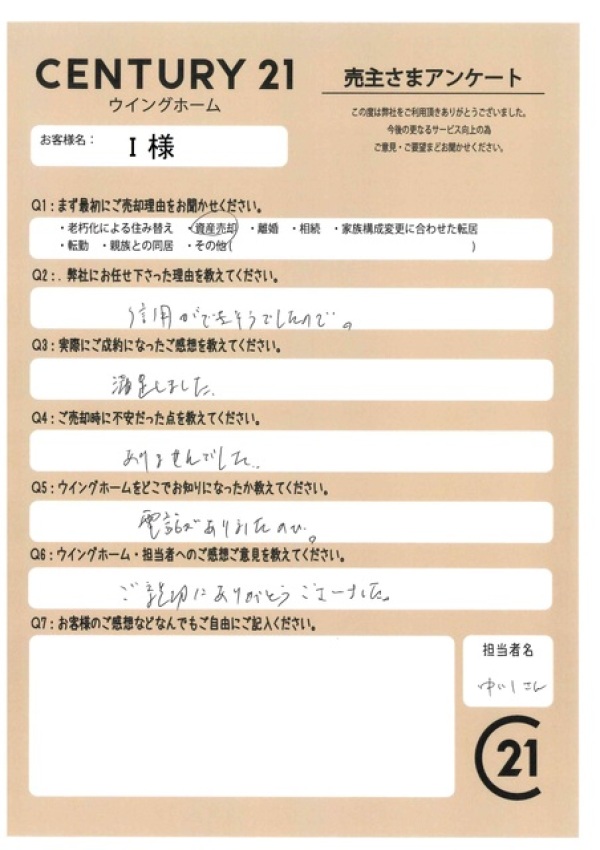 CENTURY 21
ウイングホーム
売主さまアンケート
この度は弊社をご利用頂きありがとうございました。
今後の更なるサービス向上の為
ご意見・ご要望をお聞かせください。
お客様名： I 様
Q1：まず最初にご売却理由をお聞かせください。
・老朽化による住み替え ・資産売却 ・離婚 ・相続 ・家族構成変更に合わせた転居
・転勤 ・親族との同居 ・その他( )
Q2：. 弊社にお任せ下さった理由を教えてください。
信用ができそうでしたので。
Q3：実際にご成約になったご感想を教えてください。
満足しました.
Q4：ご売却時に不安だった点を教えてください。
ありませんでした.
Q5：ウイングホームをどこでお知りになったか教えてください。
電話がありましたので。
Q6：ウイングホーム・担当者へのご感想ご意見を教えてください。
ご親切にありがとうございました。
Q7：お客様のご感想などなんでもご自由にご記入ください。
担当者名
さん
C21